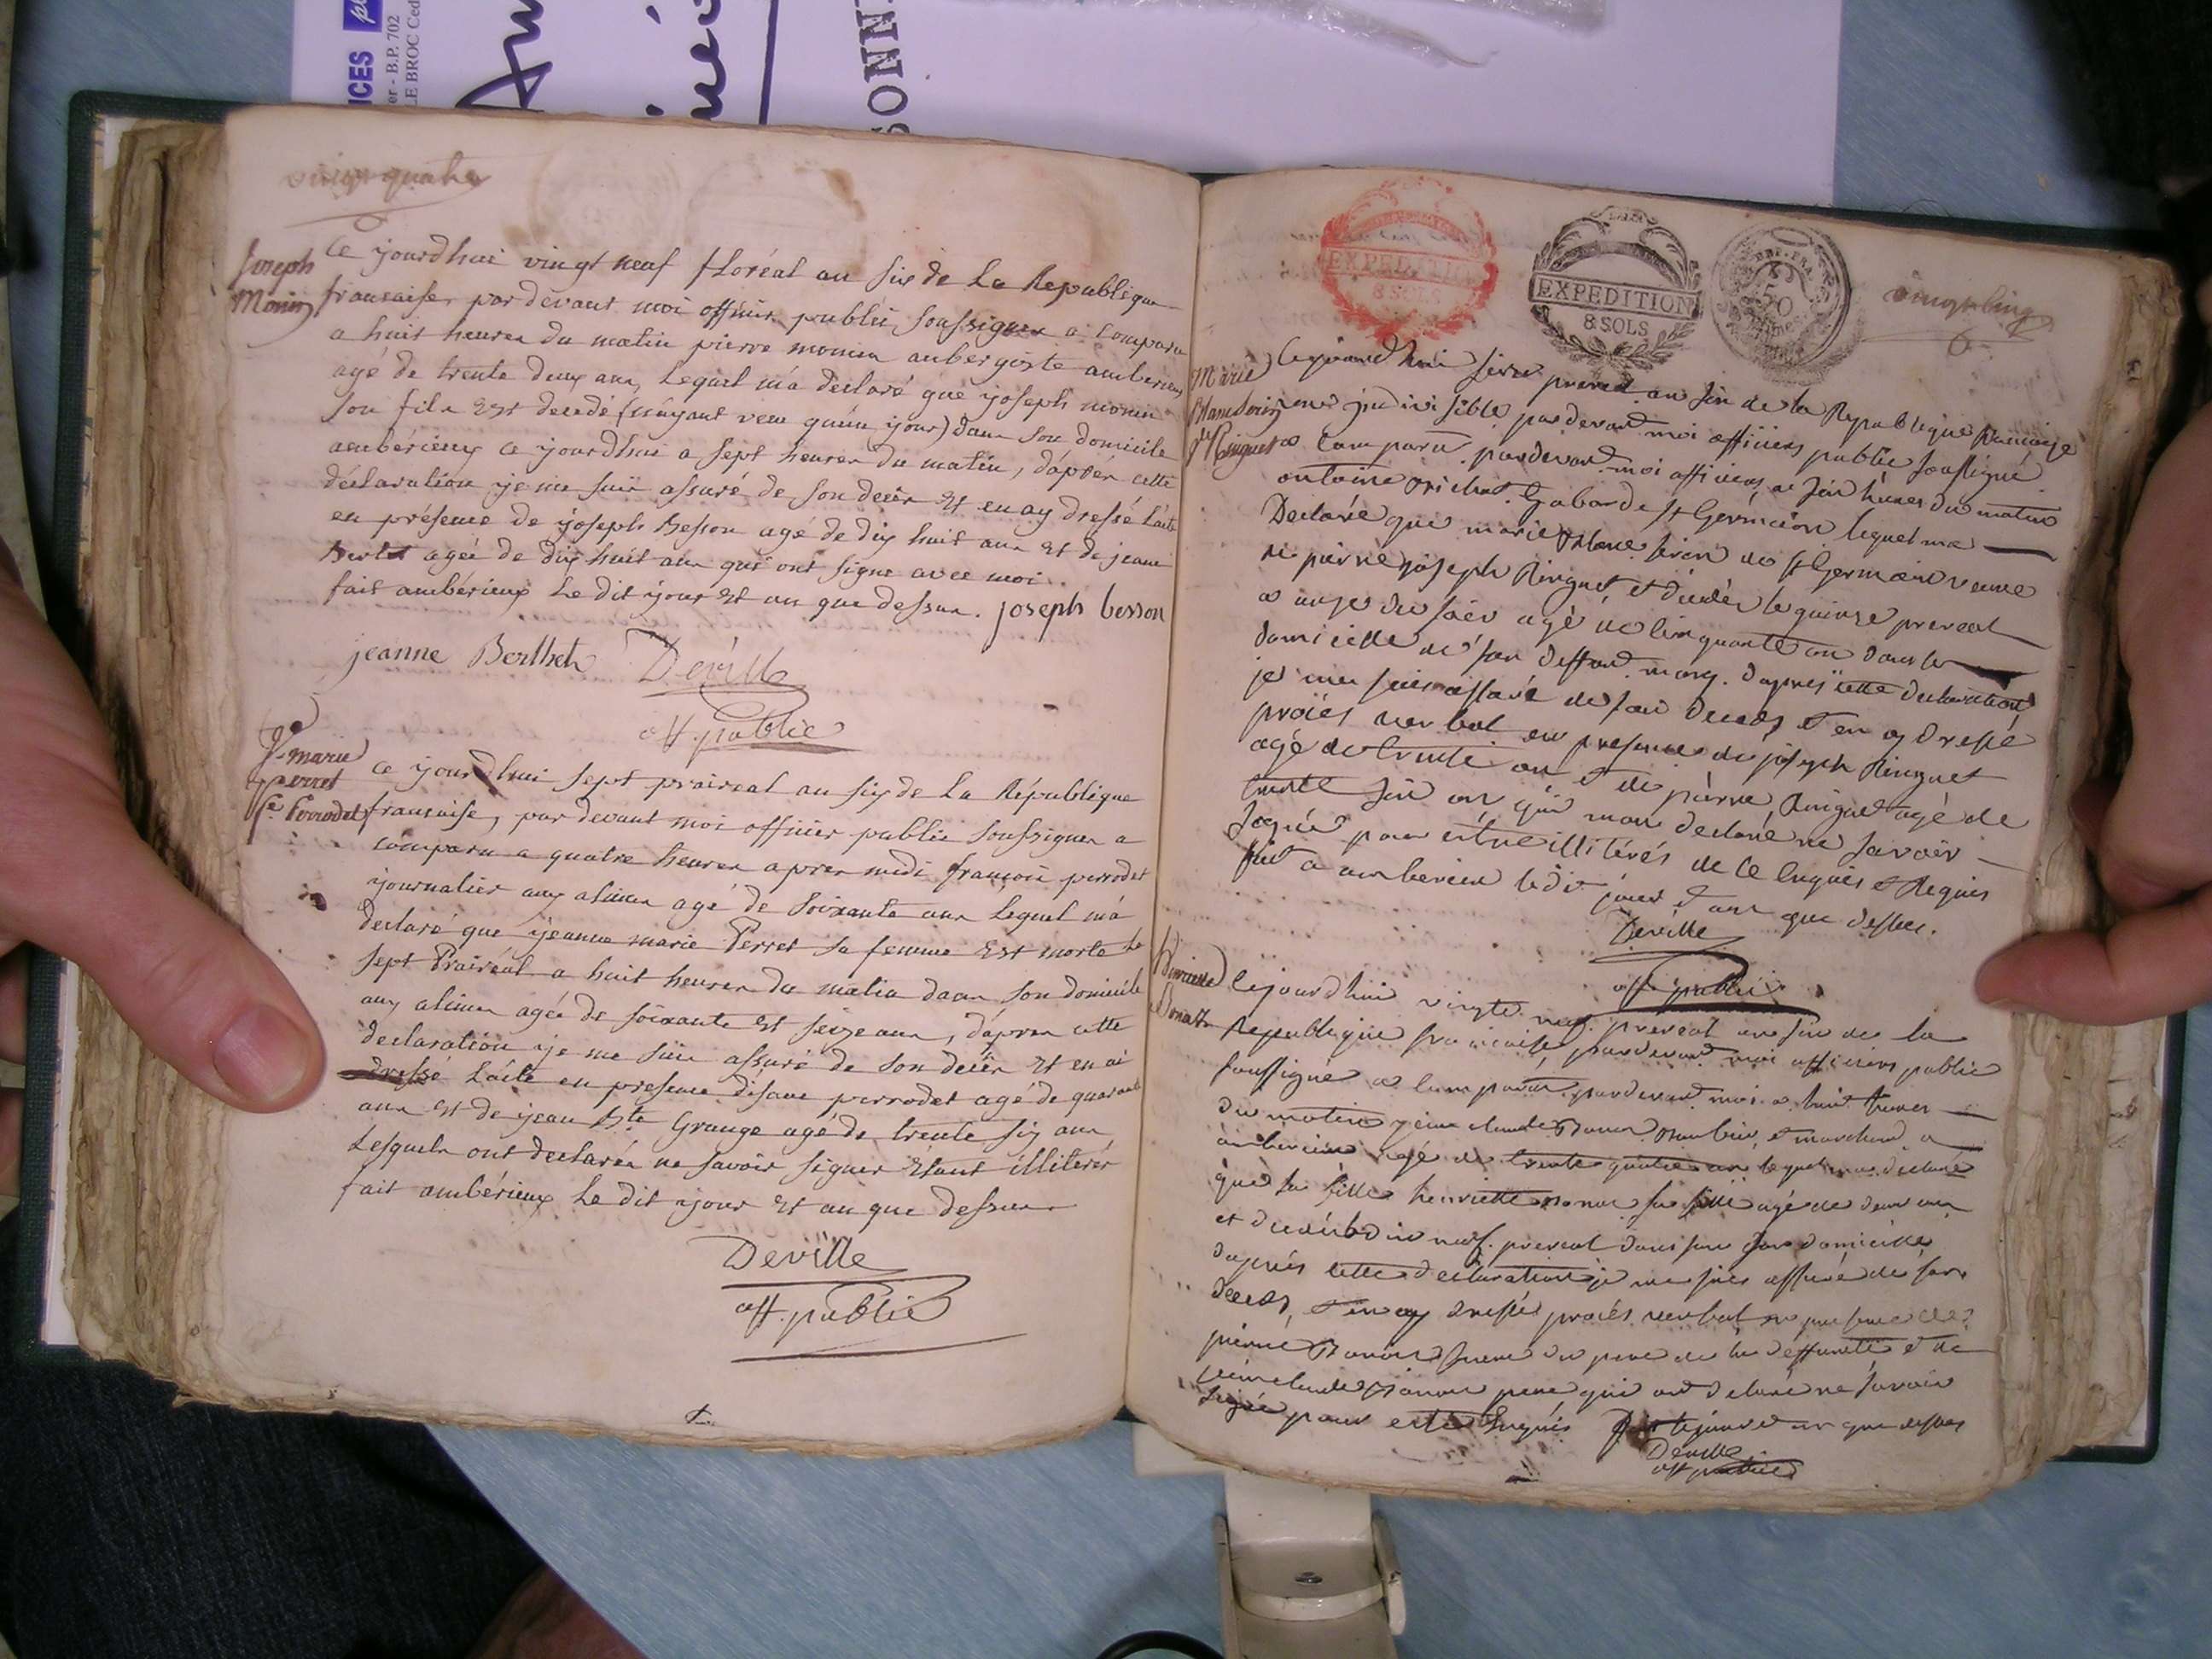 ICES
er - B.P. 702
LE BROC Ced
SONN
vingt quatre
Joseph
Monin
Ce jourdhui vingt neuf floréal an six de La Republique
francaise, par devant moi officier public soussigner a comparu
a huit heures du matin pierre monin aubergiste amberieux
agé de trente deux ans, Lequel m'a declaré que joseph monin
son fils Est decedé (n'ayant vecu qu'un jour) dans son domicile
amberieux ce jourdhui a sept heures du matin, d'aprés cette
déclaration je me suis assuré de son decès Et en ay dressé L'acte
en présence de joseph Besson agé de dix huit ans Et de jeanne
Bertet agée de dix huit ans qui ont signe avec moi.
fait ambérieux Le dit jour Et an que dessus. joseph besson
jeanne Berthet Deville
off. public
Je marie
perret
fe Perrodet
Ce jourdhui sept praireal an six de La République
francaise, par devant moi officier public soussigner a
comparu a quatre heures apres midi francois perrodet
journalier aux alimes agé de soixante ans Lequel m'a
declaré que jeanne marie Perret sa femme Est morte le
sept Praireal a huit heures du matin dans son domicile
aux alimes agée de soixante Et seize ans, d'apres cette
declaration je me suis assuré de son decès Et en ai
dressé L'acte en presence perrodet agé de quarante
ans Et de jean Bte Grange agé de trente six ans
Lesquels ont declarés ne savoir signer Etant illiterés
fait ambérieux Le dit jour Et an que dessus
Deville
off. public
EXPEDITION
8 SOLS
EXPEDITION
8 SOLS
50
vingt cinq
Marie
Ringuet
Ce jourd'hui seize prereal an six de la Republique francaise
une indivisible pardevant moi officiers public soussigné
a comparu pardevant moi officiers, a six heures du matin
antoine de st Germain lequel ma
Declaré que marie de st Germain veuve
de pierre joseph Ringuet et decedé le quinze prereal
a onze du soir agé de cinquante an dans le
domicille de son deffunt mary. d'aprés cette declaration
je me suis assuré de son decès et en ay dressé
procés verbal en presence de joseph Ringuet
agé de trente an et de pierre Ringuet agé de
trente six an qui mon declaré ne savoir
signé pour être illitérés de ce enquis et Requis
fait a amberieux le dit jour et an que dessus.
Deville
off public
henriette
Bonat
Cejourd'hui vingte neuf prereal an six de la
Republique francaise, pardevant moi officiers public
soussigné a comparu pardevant moi a huit heures
du matin et marchand a
amberieux agé de trente quatre an lequel ma declaré
que sa fille henriette sa fille agé de deux an
et decedé dix neuf prereal dans son domicille
d'aprés cette declaration je me suis assuré de son
decés, et en ay dressé procés verbal en presence de
pierre frere du pere de la deffunte et de
pere qui ont declaré ne savoir
signé pour etre enquis fait le jour et an que dessus
Deville
off public